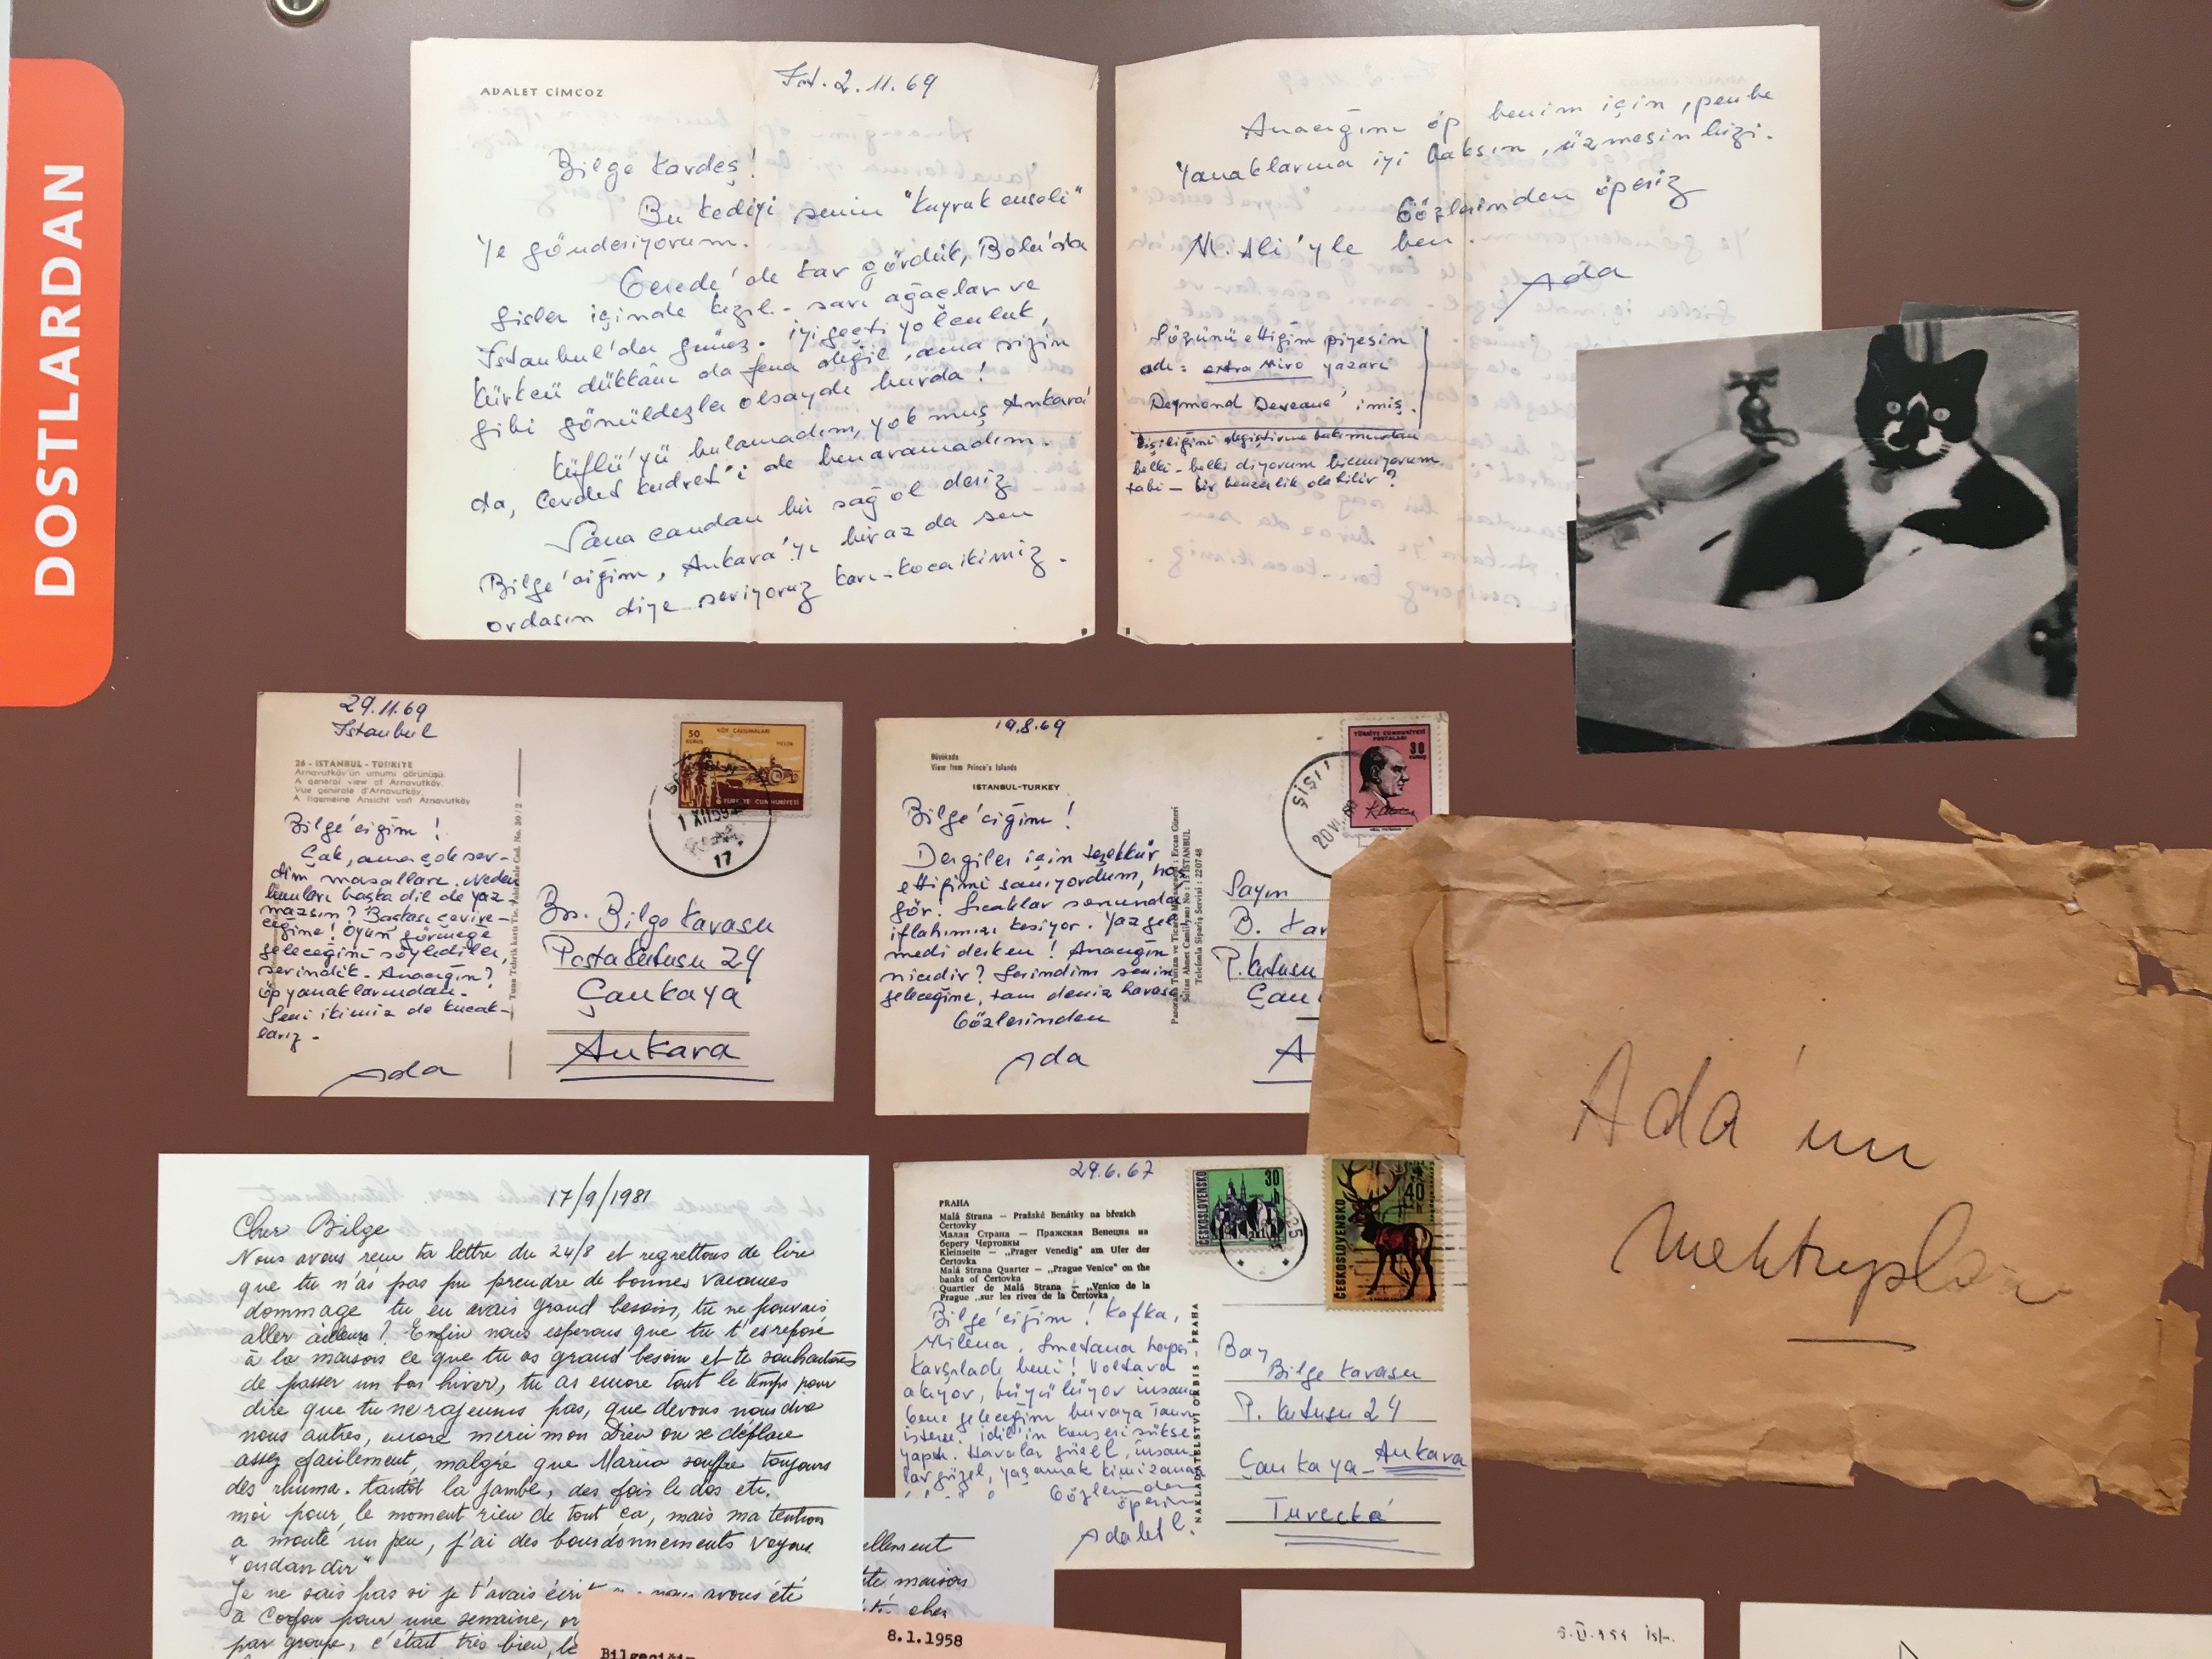 DOSTLARDAN
ADALET CİMCOZ
İst. 2.11.69
Bilge Kardeş!
Bu kediyi senin "Kuyruk enseli"
'ye gönderiyorum.
Gerede'de kar gördük, Bolu'da
sisler içinde kızıl-sarı ağaçlar ve
İstanbul'da güneş. iyi geçti yolculuk,
Kürkcü dükkânı da fena değil, ama sizin
gibi gönüldeşler olsaydı burda!
Küflü'yü bulamadım, yokmuş Ankara'
da, Cevdet Kudret'i de ben aramadım.
Sana candan bir sağ ol deriz
Bilge'ciğim, Ankara'yı biraz da sen
ordasın diye seviyoruz karı-koca ikimiz.
Anacığını öp benim için, penbe
Yanaklarına iyi baksın, üzmesin bizi.
Gözlerinden öperiz
M. Ali'yle ben.
Ada
Sözünü ettiğim piyesin
adı: yazarı
imiş.
Kişiliğini değiştirme bakımından
belki - belki diyorum bilmiyorum
tabi - bir benzerlik olabilir?
29.11.69
İstanbul
26 - ISTANBUL - TÜRKİYE
Arnavutköy'ün umumi görünüşü
A general view of Arnavutköy.
Vue générale d'Arnavutköy
Allgemeine Ansicht von Arnavutköy
50
KURUŞ
KÖY ÇALIŞMALARI
TÜRKİYE CUMHURİYETİ
17
Bilge'ciğim!
Çok, ama çok sev-
dim masalları. Neden
bunları başka dil de yaz
mazsın? Başkası çevire-
ceğine! Oyun görmeğe
geleceğini söylediler,
sevindik. Anacığın?
öp yanaklarından.
Seni ikimiz de kucak-
larız.
Ada
Bn. Bilge Karasu
Posta Kutusu 24
Çankaya
Ankara
19.8.69
Büyükada
View from Prince's Islands
ISTANBUL-TURKEY
TÜRKİYE CUMHURİYETİ
POSTALARI
30
ŞİŞLİ
Bilge'ciğim!
Dergiler için teşekkür
ettiğimi sanıyordum, hoş
gör. Sıcaklar sonunda
iflahımızı kesiyor. Yaz gel
medi derken! Anacığın
nicedir? Sevindim senin
geleceğine, tam deniz havası
Gözlerinden
Ada
Sayın
B. Kar
P. Kutusu
Çan
A
Ada'nın
mektupları
17/9/1981
Cher Bilge
Nous avons reçu ta lettre du 24/8 et regrettons de lire
que tu n'as pas pu prendre de bonnes vacances
dommage tu en avais grand besoin, tu ne pouvais
aller ailleurs? Enfin nous esperons que tu t'es reposé
à la maison ce que tu as grand besoin et te souhaitons
de passer un bon hiver, tu as encore tout le temps pour
dire que tu ne rajeunis pas, que devons nous dire
nous autres, encore merci mon Dieu on se déplace
assez facilement, malgré que Marica souffre toujours
des rhuma. tantôt la jambe, des fois le dos etc.
moi pour le moment rien de tout ça, mais ma tention
a monté un peu, j'ai des bourdonnements voyons
"ondandır"
Je ne sais pas si je t'avais écrit nous avons été
a Corfou pour une semaine, or
par groupe, c'était très bien, le
ellement
te maison
cher
29.6.67
PRAHA
Malá Strana — Pražské Benátky na březích
Čertovky
Малая Страна — Пражская Венеция на
берегу Чертовки
Kleinseite — „Prager Venedig" am Ufer der
Čertovka
Malá Strana Quarter — „Prague Venice" on the
banks of Čertovka
Quartier de Malá Strana — „Venice de la
Prague „sur les rives de la Čertovka
ČESKOSLOVENSKO
30 h
ČESKOSLOVENSKO
40
Bilge'ciğim! Kafka,
Milena, Smetana hepsi
karşıladı beni! Voltava
akıyor, büyülüyor insanı
Gene geleceğim buraya Tanrı
isterse. İdil'in konseri sükse
yaptı. Havalar güzel, insan
lar güzel, yaşamak kimi zaman
Gözlerinden
öperim
Adalet C.
NAKLADATELSTVÍ ORBIS, PRAHA
Bay
Bilge Karasu
P. Kutusu 24
Çankaya - Ankara
Turecká
8.1.1958
Bilgeciğim